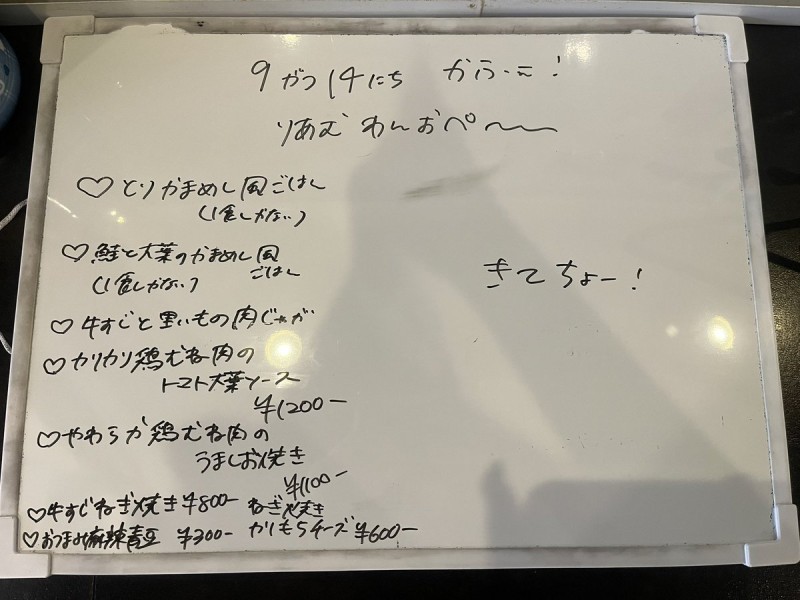 9がつ14にち かふぇ!
りあむ わんおぺ〜
♡とりかまめし風ごはん
(1食しかない)
♡鮭と大葉のかまめし風
ごはん
(1食しかない)
♡牛すじと里いもの肉じゃが
♡カリカリ鶏むね肉の
トマト大葉ソース
¥1200-
♡やわらか鶏むね肉の
うましお焼き
¥1100-
きてちょー!
♡牛すじねぎ焼き¥800-
♡おつまみ麻辣青豆 ¥300-
ねぎ焼き
かりもちチーズ¥600-